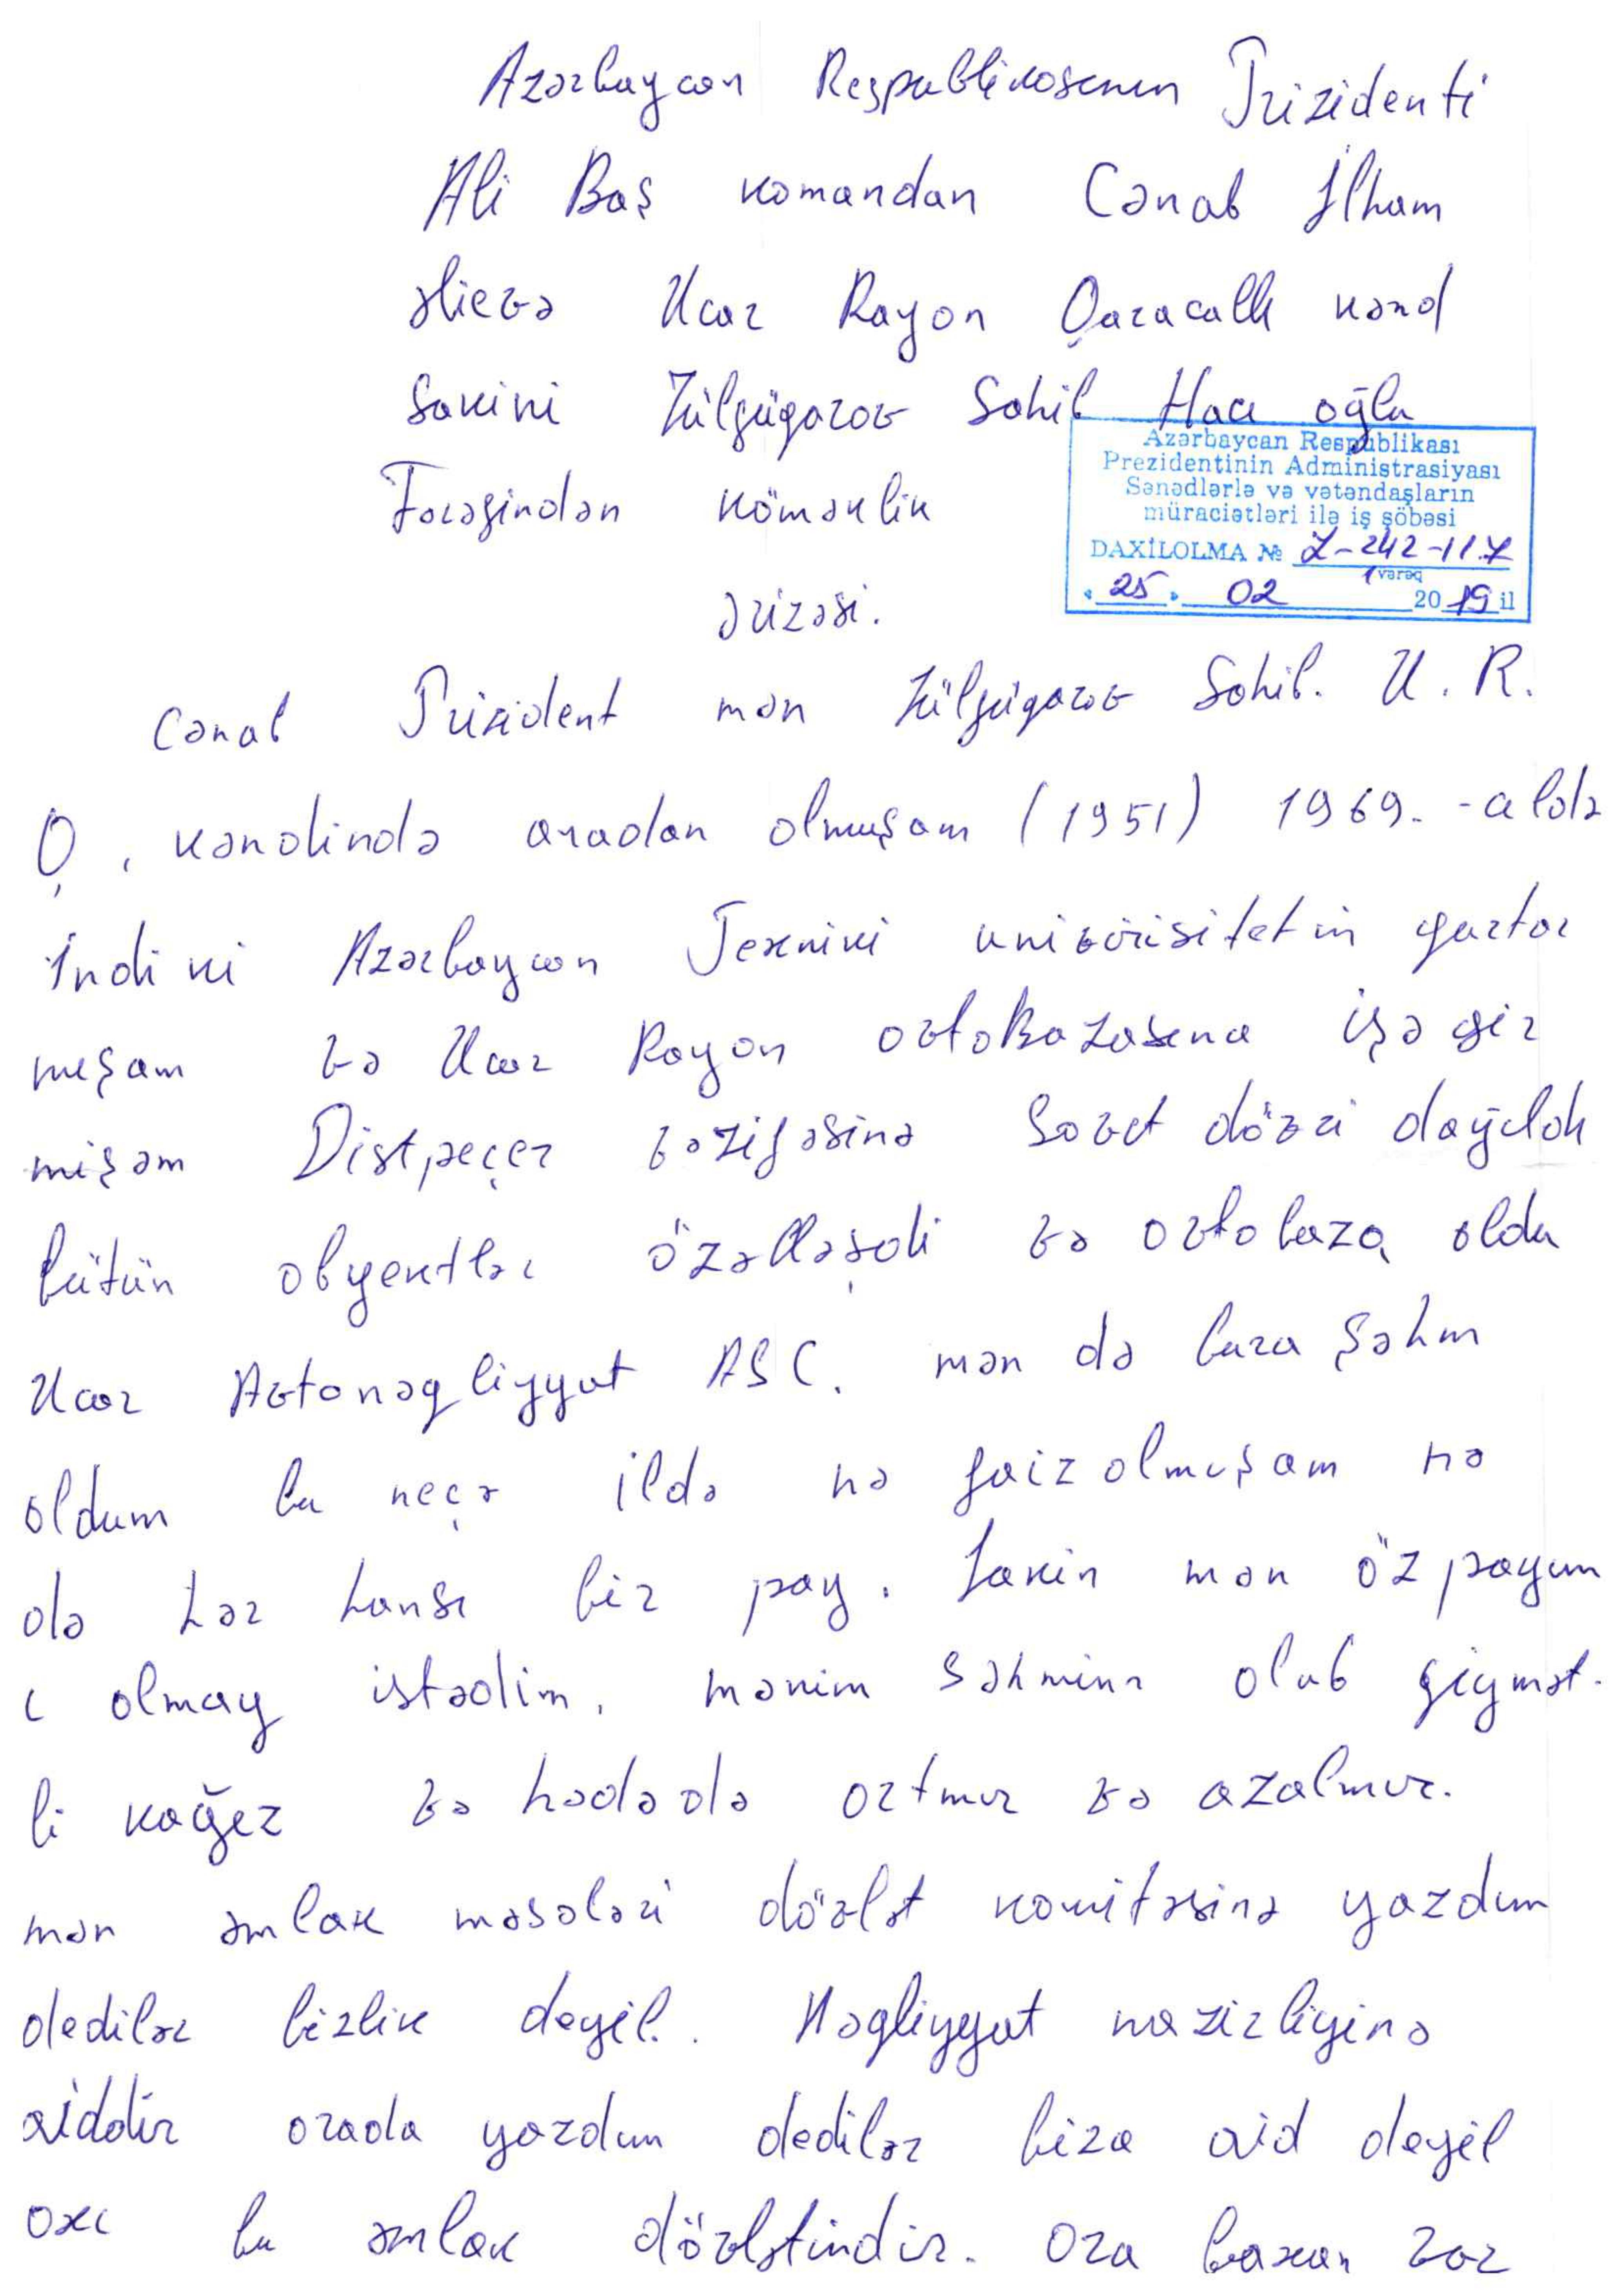 Azərbaycan Respublikasının Prizidenti
Ali Baş komandan Cənab İlham
əlievə Ucar Rayon Qaracallı kənd
Sakini Zülfüqarov Sahil Hacı oğlu
Tərəfindən köməklik
Azərbaycan Respublikası
Prezidentinin Administrasiyası
Sənədlərlə və vətəndaşların
müraciətləri ilə iş şöbəsi
DAXİLOLMA № Z-242-11.7
1 vərəq
« 25 » 02 2019 il
ərizəsi.
Cənab Prizident mən Zülfüqarov Sahil. U. R.
Q. kəndində anadan olmuşam (1951) 1969. -cıldə
İndiki Azərbaycan Texniki univirisitetin qurtar
mışam və Ucar Rayon avtoBazasına işə gir
mişəm Distpeçer vəzifəsinə Sovet dövri dağıldı
bütün obyektlər özəlləşdi və avtobaza oldu
Ucar Avtonəqliyyat ASC. mən də bura Səhm
oldum bu neçə ildə nə faiz almışam nə
də hər hansı bir pay. Lakin mən öz payım
ı almaq istədim. mənim səhmimi alıb qiymət-
li kağız və hədə də artmır və azalmır.
mən əmlak məsələri dövlət komitəsinə yazdım
dedilər bizlik deyil. Nəqliyyat nazirliyinə
aiddir orada yazdım dedilər bizə aid deyil
axı bu əmlak dövlətindir. Ora baxan var